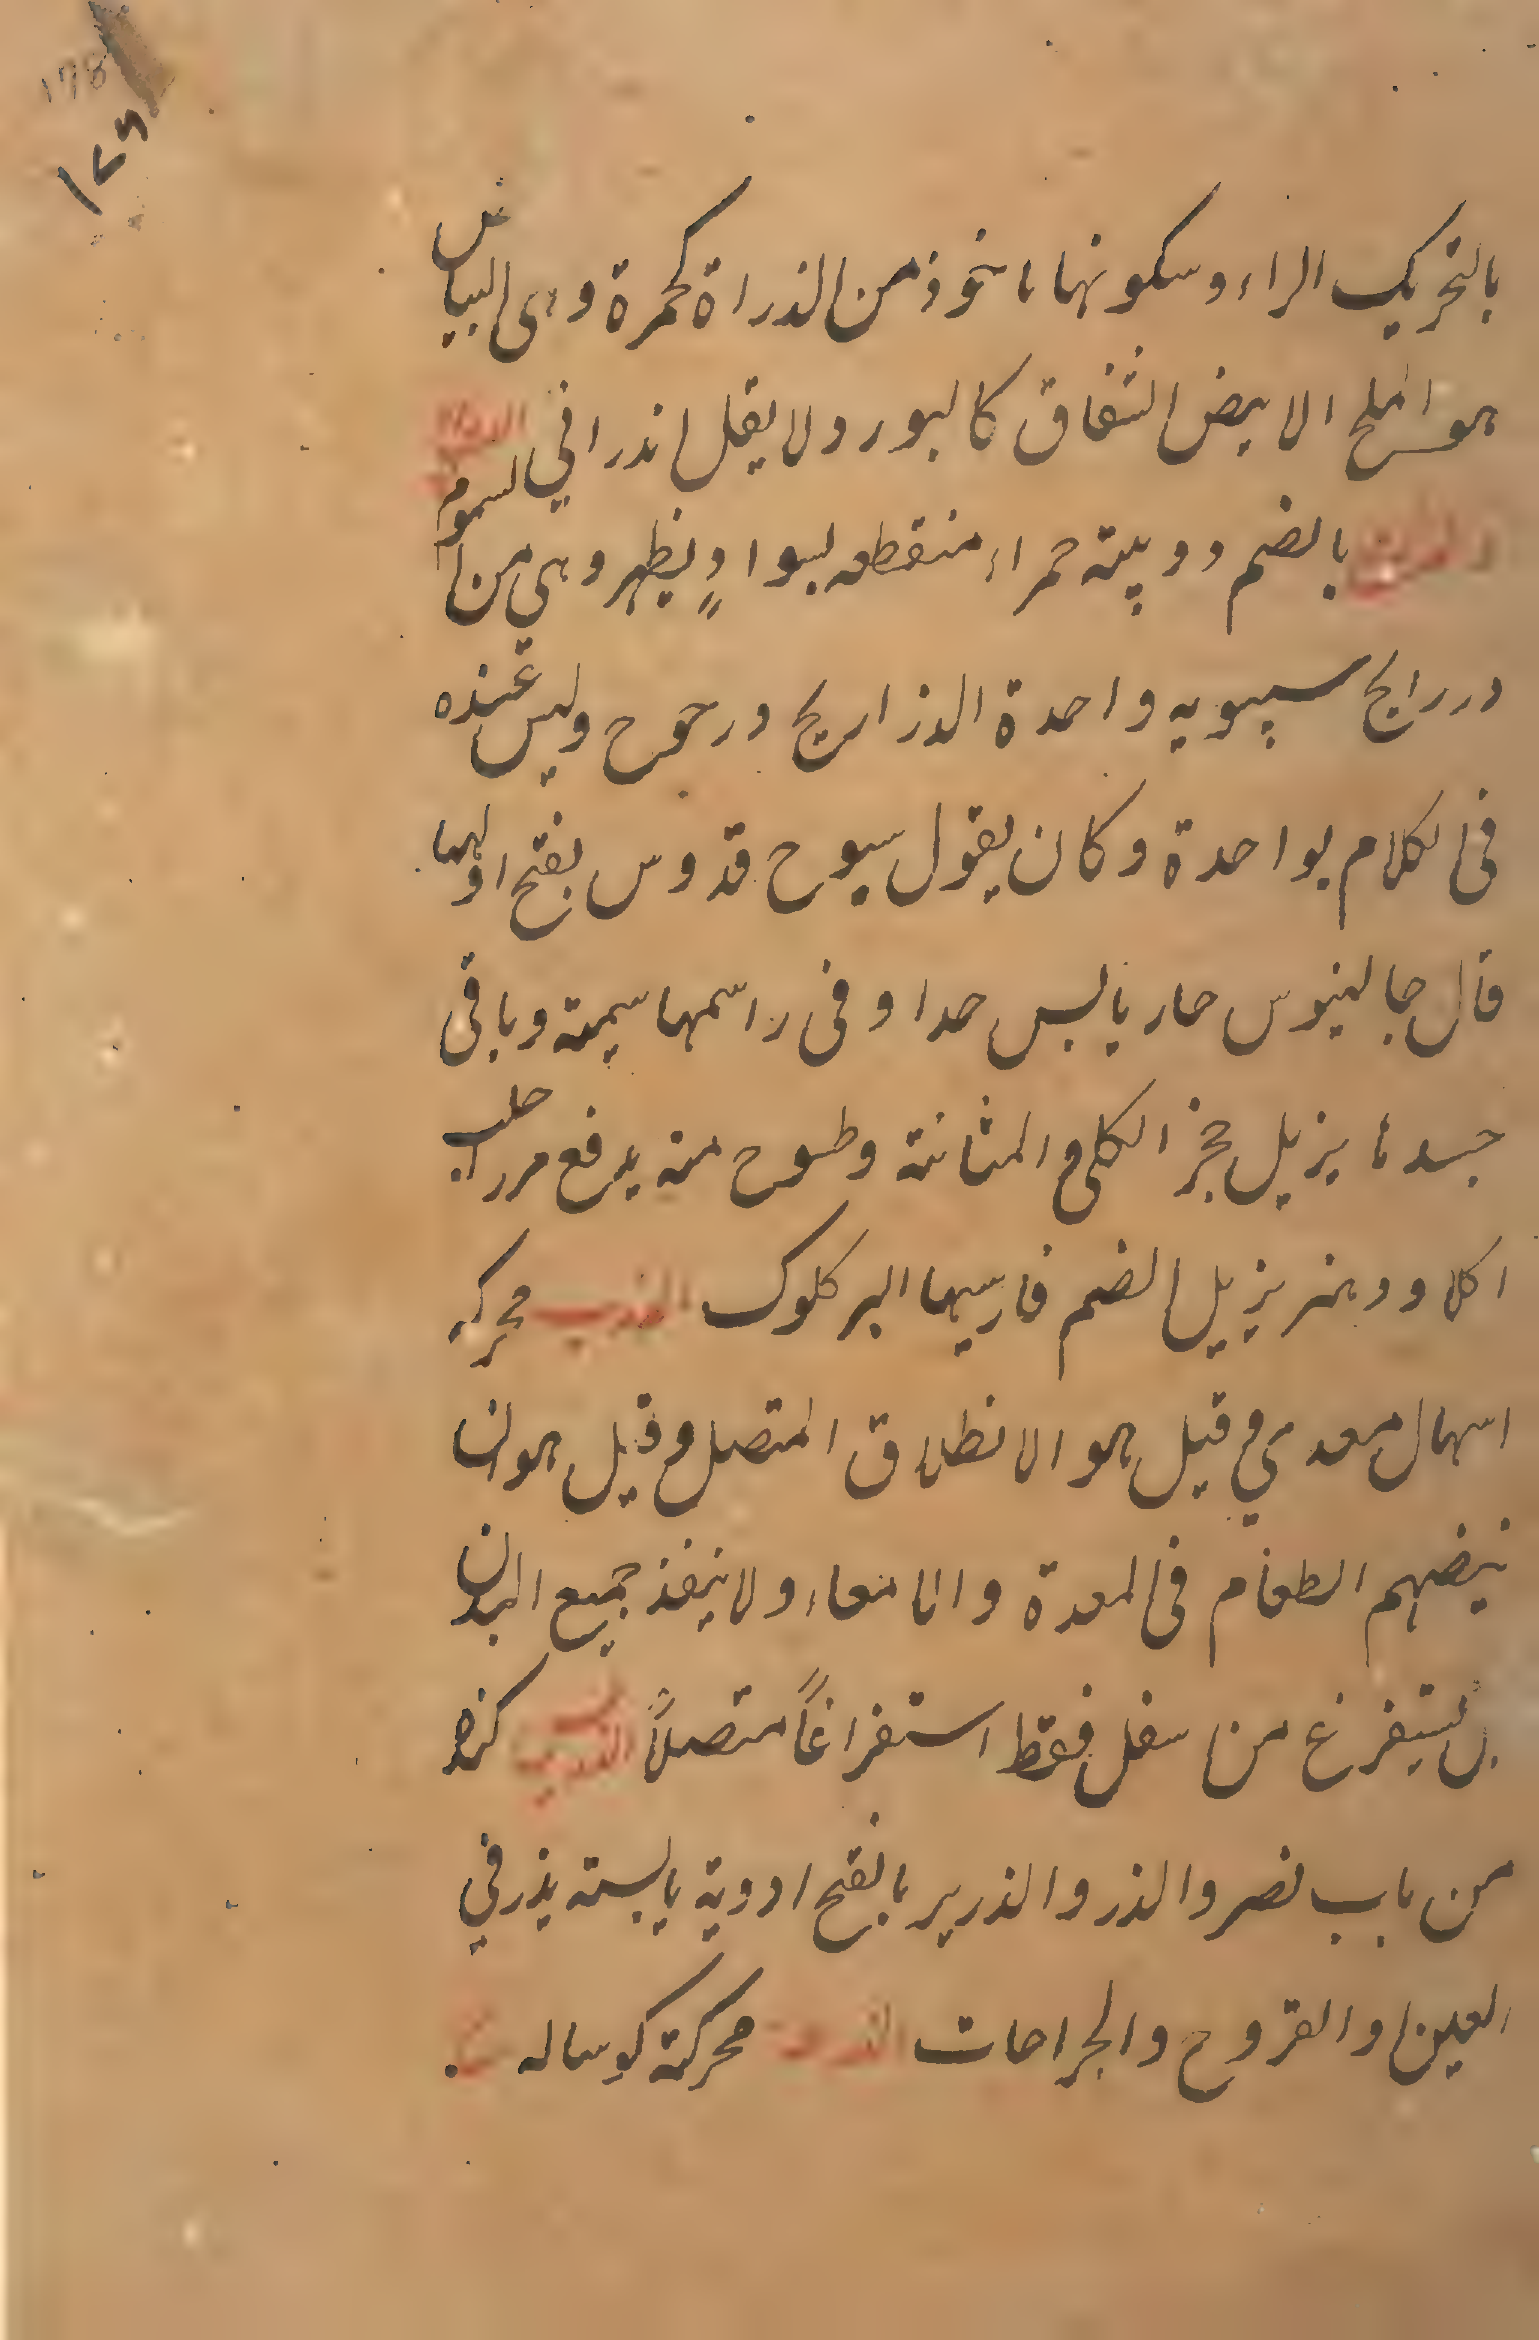 178
۱۷۶
بالتحریک الراء و سکونها ماخوذ من الذراة کحمرة و هی البیاض
هو الملح الابیض الشفاق کالبور و لا یقل اندرانی
بالضم دویبة حمراء منقطه بسوادٍ یظهر و هی من السموم
درراریح سیبویه واحدة الذراریح درحوح ولیس عنده
فی الکلام بواحدة و کان یقول سبوح قدوس بفتح اولهما
قال جالینوس حار یابس حدا و فی راسمها سمیة و باقی
جسدها یزیل حجز الکلی و المثانة و طبوح منه یدفع ضرر کلب
اکلا و دهنه یزیل الضم فارسیها البر کلوک الذرب محرکه
اسهال معدی و قیل هو الانطلاق المتصل و قیل هو ان
ینهضم الطعام فی المعدة و الامعاء و لا ینفذ جمیع البدن
بل یستفرغ من سفل فقط استفراغاً متصلاً
من باب نصر و الذر و الذریر بالفتح ادویة یابسته یذر فی
العین و القروح و الجراحات محرکة کوساله